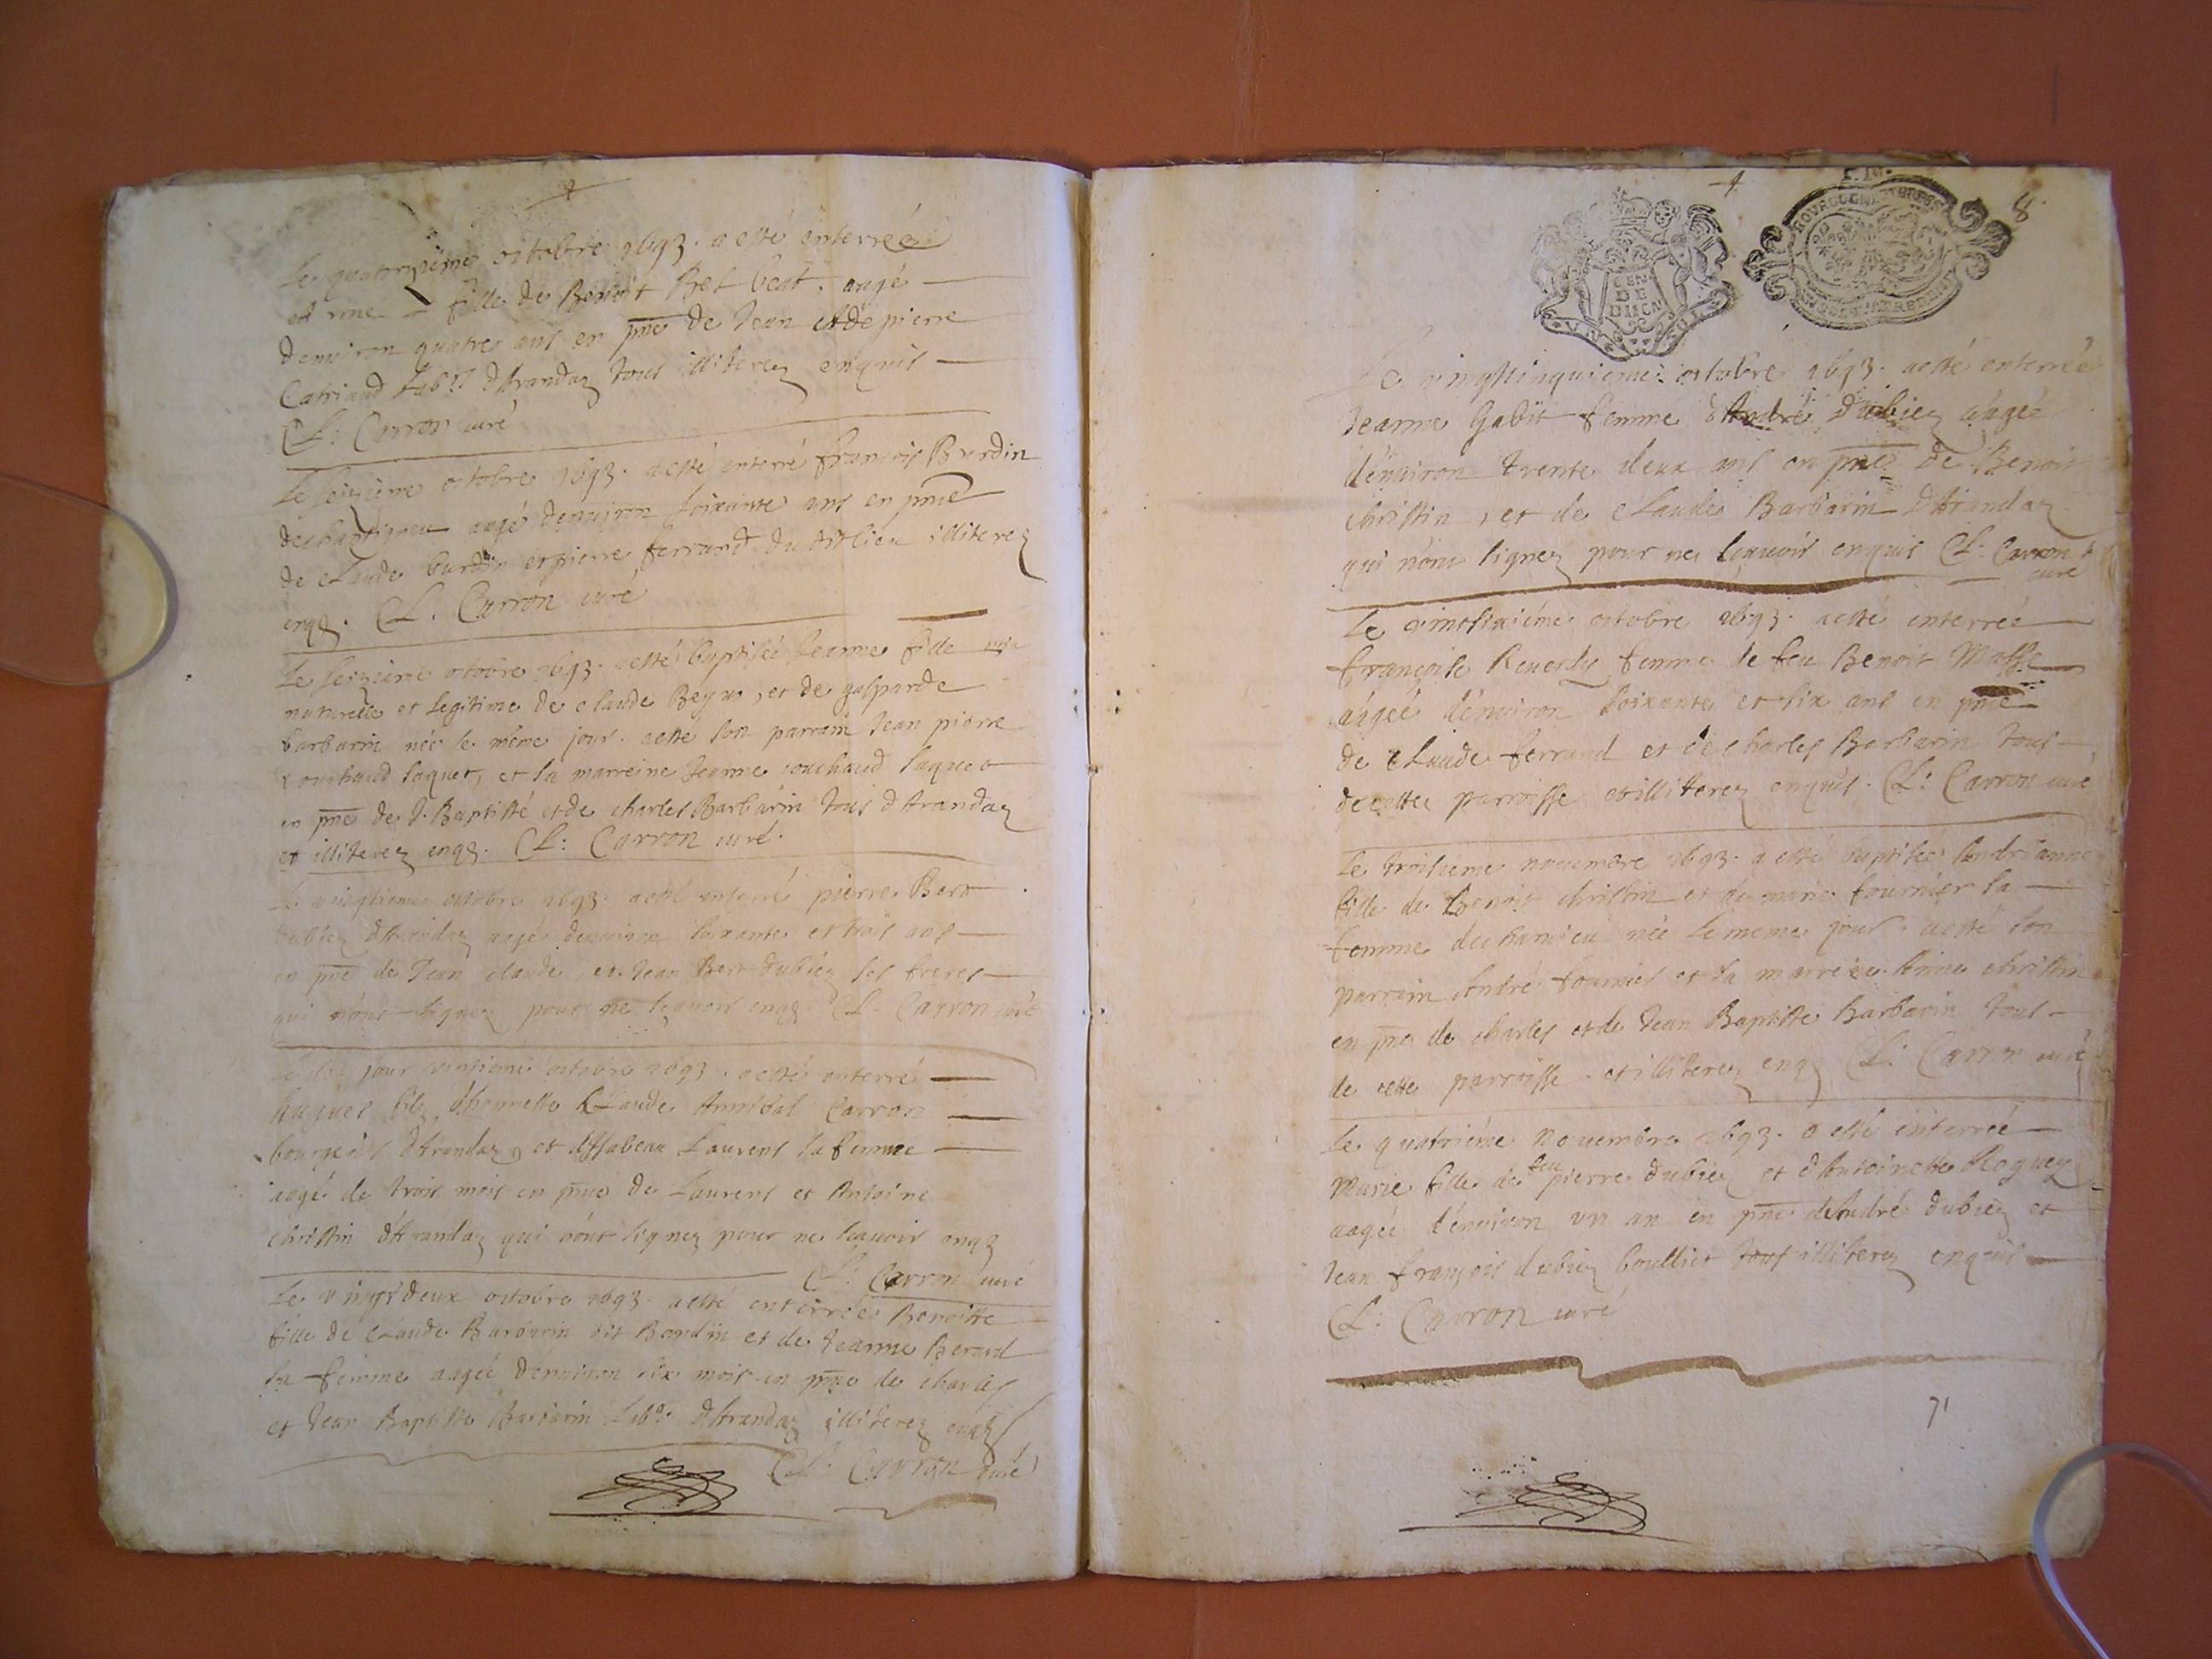 Le quatorzieme octobre 1693. a esté enterrée
fille de Benoit Bel beat, augé
denuiron quatre ans en pnce de Jean et de pierre
Catriand Labrs dArandaz tous illiterez enquis
CL: Carron curé
Le seizieme octobre 1693. a esté enterré françois Burdin
de chantigneu augé denuiron soixante ans en pnce
de claude burdin et pierre ferrand du dit lieu illiterez
enqs. CL. Carron curé
Le seizieme octobre 1693. a esté baptisée Jeanne fille
naturelle et legitime de claude Beyno, et de gasparde
barbarin née le même jour. a esté son parrain Jean pierre
couchaud saquet, et sa marreine Jeanne couchaud saquet
en pnce de J. Baptiste et de charles Barbarin tous dArandaz
et illiterez enqs. CL: Carron curé.
Le vingtieme octobre 1693. a esté enterré pierre Bert
dubiez dArandaz augé denuiron soixante et trois ans
en pnce de Jean claude et Jean Bert dubiez ses freres
qui n'ont signez pour ne sçauoir enqs. CL. Carron curé
Le dit jour vintieme octobre 1693. a esté enterré
hugues filz d'honneste Claude Annibal Carron
bourgeois dArandaz et dYsabeau Laurens sa femme
augé de trois mois en pnce de Laurens et Antoine
christin dArandaz qui n'ont signez pour ne sçauoir enqs
CL: Carron curé
Le vingt deux octobre 1693. a esté enterrée Benoitte
fille de claude Barbarin dit Bondin et de Jeanne Berard
sa femme augée denuiron six mois en pnce de charles
et Jean Baptiste Barbarin Labrs dArandaz illiterez enqs
CL: Carron curé
8
GEN
DE
DIION
BOVRGOGNE BRESSE
Le vingtcinquieme octobre 1693. a esté enterrée
Jeanne Gabit femme dAndré Dubiez âagée
d'enuiron trente deux ans en pnce de Benoit
christin, et de claude Barbarin dArandaz
qui n'ont signez pour ne sçauoir enquis CL: Carron
curé
Le vintsixiéme octobre 1693. a esté enterrée
françoise Reuerdy femme de feu Benoit Masse
âagée d'enuiron soixante et six ans en pnce
de claude ferrand et de charles Barbarin tous
de cette parroisse et illiterez enquis. CL: Carron curé
Le troisieme nouembre 1693. a esté baptisée Andrianne
fille de Benoit christin et de marie fournier sa
femme de chanieu née le meme jour. a esté son
parrain André fournier et sa marreine Anne christin
en pnce de charles et de Jean Baptiste Barbarin tous
de cette parroisse. et illiterez enqs CL: Carron curé
Le quatriéme nouembre 1693. a esté enterrée
Marie fille de feu pierre dubiez et dAntoinette Roguey
aagée d'enuiron vn an en pnce dAndré dubiez et
Jean françois dubiez boulliet tous illiterez enquis
CL: Carron curé
71